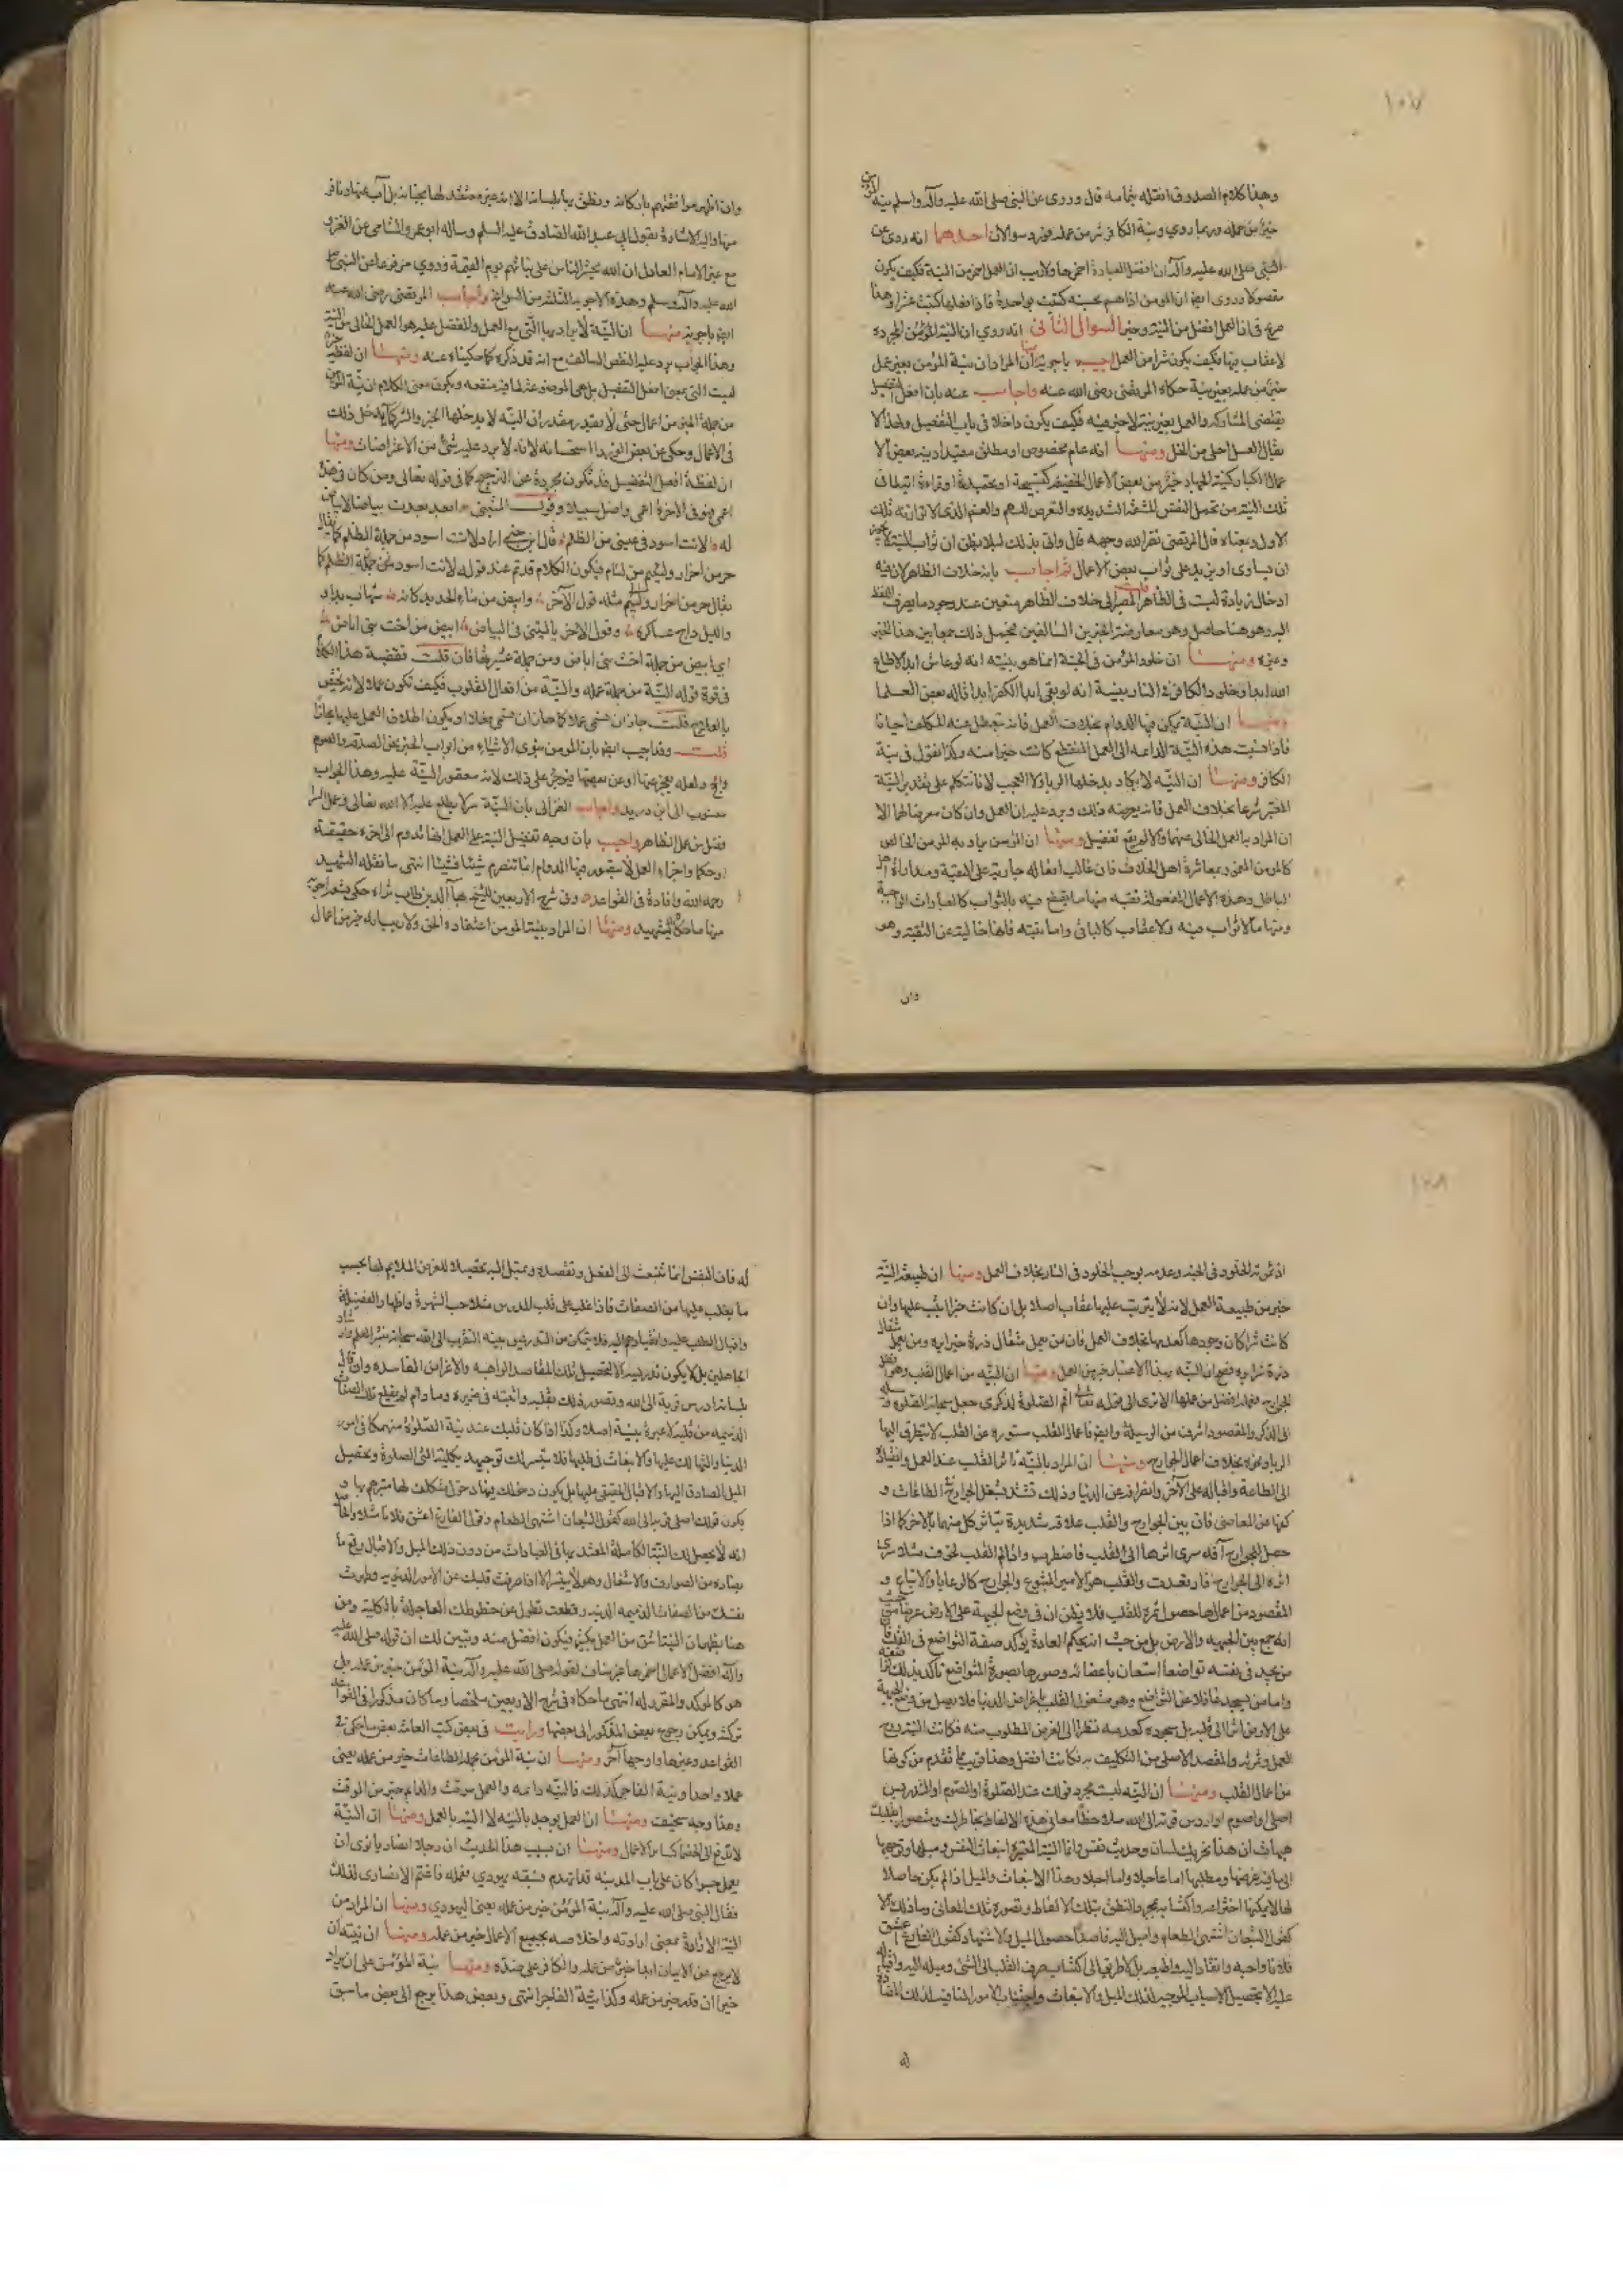 ١٠٧
وهذا كلام الصدوق انقله بتمامه قال وروى عن النبي صلى الله عليه وآله وسلم نية المؤمن
خير من عمله وربما روي ونية الكافر شر من عمله فورد سوالان احدهما انه روى عن
النبي صلى الله عليه وآله ان افضل العبادة احمزها ولاريب ان العمل احمز من النية فكيف يكون
مفضولا وروى ايضا ان المومن اذا هم بحسنة كتبت بواحدة فاذا فعلها كتبت عشرا وهذا
صريح فى ان العمل افضل من النية وخير السوال الثانى انه روي ان النية المجردة
لاعقاب فيها فكيف يكون شرا من العمل اجيب باجوبة منها ان المراد ان نية المؤمن بغير عمل
خير من عمله بغير نية حكاه المرتضى رضى الله عنه واجاب عنه بان افعل التفضيل
يقتضى المشاركة والعمل بغير نية لاخير فيه فكيف يكون داخلا فى باب التفضيل ولهذا لا
يقال العسل احلى من الخل ومنها انه عام مخصوص او مطلق مقيد اي نية بعض الا
عمال الكبار كنية الجهاد خير من بعض الاعمال الخفيفة كتسبيحة او تحميدة او قراءة اية لما فى
تلك النية من تحمل النفس المشقة الشديدة والتعرض للغم والهم الذى لا توازنه تلك
الاول وبمعناه قال المرتضى نضر الله وجهه قال واتى بذلك لئلا يظن ان ثواب النية لا يجوز
ان يساوى او يزيد على ثواب بعض الاعمال ثم اجاب بانه خلاف الظاهر لان فيه
ادخال زيادة ليست فى الظاهر قلت المصير الى خلاف الظاهر متعين عند وجود ما يصرف اللفظ
اليه وهو هنا حاصل وهو معارضة الخبرين السالفين فيحمل ذلك جمعا بين هذا الخبر
وغيره ومنها ان خلود المؤمن فى الجنة انما هو بنيته انه لو عاش ابدا لاطاع
الله ابدا وخلود الكافر فى النار بنية انه لو بقى ابدا لكفر ابدا قاله بعض العلما
ومنها ان النية يمكن فيها الدوام بخلاف العمل فانه يتعطل عنه المكلف احيانا
فاذا نسبت هذه النية الدائمة الى العمل المنقطع كانت خيرا منه وكذا نقول فى نية
الكافر ومنها ان النية لا يكاد يدخلها الريا ولا العجب لانا نتكلم على تقدير النية
المعتبر شرعا بخلاف العمل فانه يعرضه ذلك ويرد عليه ان العمل وان كان معرضا لهما الا
ان المراد به العمل الخالى عنهما والا لم يقع تفضيل ومنها ان المؤمن يراد به المومن الخالص
كالمومن المغمور بمعاشرة اهل الخلاف فان غالب افعاله جارية على التقية ومداراة اهل
الباطل وهذه الاعمال المفعولة تقية منها ما يقطع فيه بالثواب كالعبادات الواجبة
ومنها ما لا ثواب فيه ولا عقاب كالباقى واما نيته فانها خالية عن التقية وهو
وان
وان اظهر موافقتهم باركانه ونطق بها بلسانه الا انه غير معتقد لها بجنانه بل آب عنها ونافر
منها واليه الاشارة بقول ابى عبد الله الصادق عليه السلم وساله ابو عمرو الشامى عن الغزو
مع غير الامام العادل ان الله يحشر الناس على نياتهم يوم القيمة وروي مرفوعا عن النبى صلى
الله عليه وآله وسلم وهذه الاجوبة الثلثة من السوانح واجاب المرتضى رضى الله عنه
ايضا باجوبة منها ان النية لا يراد بها التى مع العمل والمفضل عليه هو العمل الخالى من النية
وهذا الجواب يرد عليه النقض السالف مع انه قد ذكره كما حكيناه عنه ومنها ان لفظة خير
ليست التى بمعنى افعل التفضيل بل هى الموضوعة لما فيه منفعة ويكون معنى الكلام ان نية المؤمن
من جملة الخير من اعماله حتى لا يقدر مقدر ان النية لا يدخلها الخير والشر كما يدخل ذلك
فى الاعمال وحكى عن بعض الوزراء استحسانه لانه لا يرد عليه شئ من الاعتراضات ومنها
ان لفظة افعل التفضيل قد تكون مجردة عن الترجيح كما فى قوله تعالى ومن كان فى هذه
اعمى فهو فى الاخرة اعمى واضل سبيلا وقول المتنبى ابعد بعدت بياضا لا بياض
له لانت اسود فى عينى من الظلم قال ابن جنى اراد لانت اسود من جملة الظلم كما يقال
حر من احرار ولئيم من لئام فيكون الكلام قد تم عند قوله لانت اسود
يقال حر من احرار ولئيم مثله قول الآخر وابيض من ماء الحديد كانه شهاب بدا و
والليل داج عساكره وقول الاخر يا ليتنى فى البياض ابيض من اخت بنى اباض
اي ابيض من جملة اخت بنى اباض ومن جملة عشيرتها فان قلت فقضية هذا الكلام
فى قوة قوله النية من جملة عمله والنية من افعال القلوب فكيف تكون عملا لانه يختص
بالعلاج قلت جاز ان تسمى عملا كما جاز ان تسمى فعلا او يكون اطلاق العمل عليها مجازا
قلت وقد اجيب ايضا بان المومن ينوى الاشياء من ابواب الخير نحو الصدقة والصوم
والحج ولعله يعجز عنها او عن بعضها فيؤجر على ذلك لانه معقود النية عليه وهذا الجواب
منسوب الى ابن دريد واجاب الغزالى بان النية سر لا يطلع عليه الا الله تعالى وعمل السر
افضل من عمل الظاهر واجيب بان وجه تفضيل النية على العمل انها تدوم الى اخره حقيقة
او حكما واجزاء العمل لا يتصور فيها الدوام انما تتصرم شيئا فشيئا انتهى ما نقله الشهيد
رحمه الله وافاده فى القواعد وفى شرح الاربعين للشيخ بهاء الدين طاب ثراه حكى تسعة اجوبة
منها ما حكاه الشهيد ومنها ان المراد بنية المومن اعتقاده الحق ولاريب انه خير من اعماله
١٠٨
اذ ثمرته الخلود فى الجنة وعدمه يوجب الخلود فى النار بخلاف العمل ومنها ان طبيعة النية
خير من طبيعة العمل لانه لا يترتب عليها عقاب اصلا بل ان كانت خيرا اثيب عليها وان
كانت شرا كان وجودها كعدمها بخلاف العمل فان من يعمل مثقال ذرة خيرا يره ومن يعمل مثقال
ذرة شرا يره فصح ان النية بهذا الاعتبار خير من العمل ومنها ان النية من اعمال القلب وهو افضل
الجوارح فعمله افضل من عملها الا ترى الى قوله تعالى اقم الصلوة لذكرى جعل سبحانه الصلوة وسيلة
الى الذكر والمقصود اشرف من الوسيلة وايضا فاعمال القلب مستورة عن الخلق لا يتطرق اليها
الريا ونحوه بخلاف اعمال الجوارح ومنها ان المراد بالنية تاثر القلب عند العمل وانقياده
الى الطاعة واقباله على الآخرة وانصرافه عن الدنيا وذلك يشتد بشغل الجوارح فى الطاعات و
كفها عن المعاصى فان بين الجوارح والقلب علاقة شديدة يتاثر كل منهما بالآخر كما اذا
حصل للجوارح آفة سرى اثرها الى القلب فاضطرب واذا تالم القلب لخوف مثلا سرى
اثره الى الجوارح فارتعدت والقلب هو الامير المتبوع والجوارح كالرعايا والاتباع و
المقصود من اعمالها حصول ثمرة للقلب فلا يظن ان فى وضع الجبهة على الارض غرضا من حيث
انه جمع بين الجبهة والارض بل من حيث انه بحكم العادة يؤكد صفة التواضع فى القلب فان
من يجد فى نفسه تواضعا استعان باعضائه وصورها بصورة المتواضع تاكد بذلك تواضعه
واما من يسجد غافلا عن التواضع وهو مشغول القلب باغراض الدنيا فلا يصل من وضع الجبهة
على الارض اثر الى قلبه بل سجوده كعدمه نظرا الى الغرض المطلوب منه فكانت النية روح
العمل وثمرته والمقصد الاصلى من التكليف به فكانت افضل وهذا قريب مما تقدم من كونها
من اعمال القلب ومنها ان النية ليست مجرد قولك عند الصلوة او الصوم او التدريس
اصلى او اصوم او ادرس قربة الى الله ملاحظا معانى هذه الالفاظ بخاطرك ومتصورا بقلبك
هيهات ان هذا تحريك لسان وحديث نفس وانما النية المعتبرة انبعاث النفس وميلها وتوجهها
الى ما فيه غرضها ومطلبها اما عاجلا واما اجلا وهذا الانبعاث والميل اذا لم يكن حاصلا
لها لا يمكنها اختراعه واكتسابه بمجرد النطق بتلك الالفاظ وتصور تلك المعانى وما ذلك الا
كقول الشبعان اشتهى الطعام واميل اليه قاصدا حصول الميل والاشتهاء وكقول الفارغ اعشق
فلانا واحبه وانقاد اليه واطيعه بل لا طريق الى اكتساب صرف القلب الى الشئ وميله اليه واقباله
عليه الا بتحصيل الاسباب الموجبة لذلك الميل والانبعاث واجتناب الامور المنافية لذلك المضادة
له
له فان النفس انما تنبعث الى الفعل وتقصده وتميل اليه تحصيلا للغرض الملايم لها بحسب
ما يغلب عليها من الصفات فاذا غلب على قلب المدرس مثلا حب الشهرة واظهار الفضيلة
واقبال الطلبة عليه وانقيادهم اليه فلا يتمكن من التدريس بنية التقرب الى الله سبحانه بنشر العلم وارشاد
الجاهلين بل لا يكون تدريسه الا لتحصيل تلك المقاصد الواهية والاغراض الفاسدة وان قال
بلسانه ادرس قربة الى الله وتصور ذلك بقلبه واثبته فى ضميره وما دام لم يقلع تلك الصفات
الذميمة من قلبه لا عبرة بنيته اصلا وكذا اذا كان قلبك عند نية الصلوة منهمكا فى امور
الدنيا والتهالك عليها والانبعاث فى طلبها فلا يتيسر لك توجيهه بكليته الى الصلوة وتحصيل
الميل الصادق اليها والاقبال الحقيقى عليها بل يكون دخولك فيها دخول متكلف لها متبرم بها و
يكون قولك اصلى قربة الى الله كقول الشبعان اشتهى الطعام وقول الفارغ اعشق فلانا مثلا والحاصل
انه لا يحصل لك النية الكاملة المعتد بها فى العبادات من دون ذلك الميل والاقبال وقمع ما
يضاده من الصوارف والاشغال وهو لا يتيسر الا اذا صرفت قلبك عن الامور الدنيوية وطهرت
نفسك من الصفات الذميمة الدنية وقطعت نظرك عن حظوظك العاجلة بالكلية ومن
هنا يظهر ان النية اشق من العمل بكثير فيكون افضل منه وتبين لك ان قوله صلى الله عليه
وآله افضل الاعمال احمزها غير مناف لقوله صلى الله عليه وآله نية المؤمن خير من عمله بل
هو كالموكد والمقرر له انتهى ما حكاه فى شرح الاربعين ملخصا وما كان مذكورا فى القواعد
تركته ويمكن رجوع بعض المذكور الى بعضها ورايت فى بعض كتب العامة بعض ما حكى فى
القواعد وغيرها واوجها آخر ومنها ان نية المؤمن بجملة الطاعات خير من عمله يعنى
عملا واحدا ونية الفاجر كذلك فالنية دائمة والعمل موقت والدائم خير من الموقت
وهذا وجه سخيف ومنها ان العمل يوجد بالنية لا النية بالعمل ومنها ان النية
ومنها ان سبب هذا الحديث ان رجلا انصاريا نوى ان
يعمل جسرا كان على باب المدينة قد انهدم فسبقه يهودي فعمله فاغتم الانصارى لذلك
فقال النبى صلى الله عليه وآله نية المؤمن خير من عمله يعنى اليهودي ومنها ان المراد من
النية الارادة بمعنى ارادته واخلاصه بجميع الاعمال خير من عمله ومنها ان نيته ان
لا يرجع من الايمان ابدا خير من عمله والكافر على ضده ومنها نية المؤمن على ان يزاد
خيرا ان قدر خير من عمله وكذا نية الفاجر انتهى وبعض هذا يرجع الى بعض ما سبق